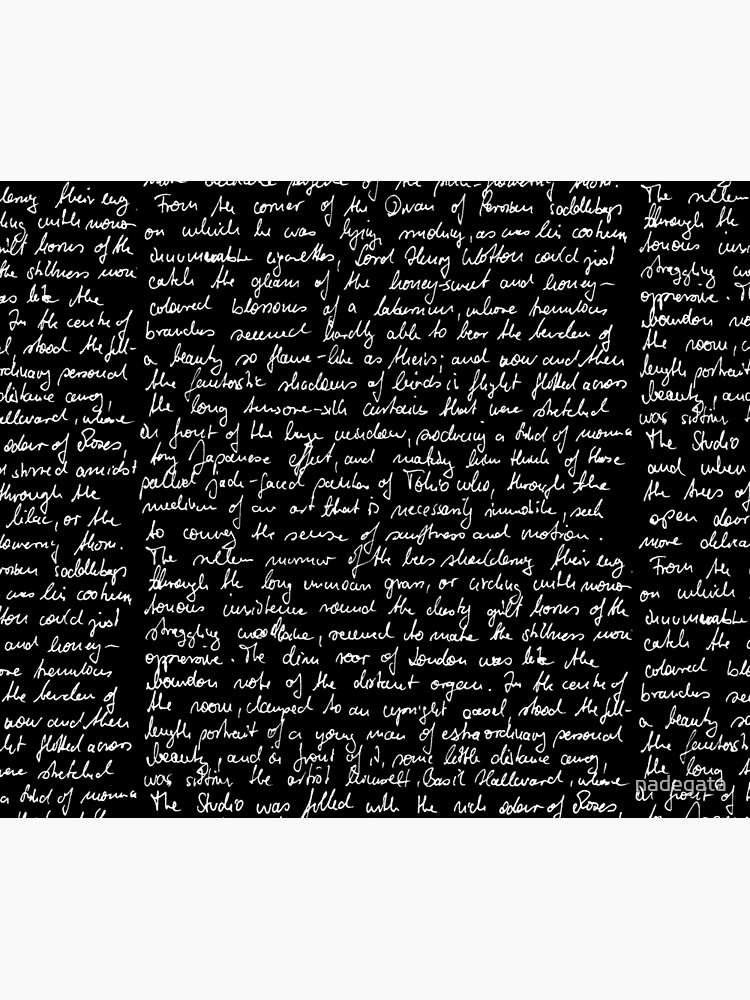 their eng
ling with mono
gilt horns of the
the stillness more
as like the
In the centre of
stood the full-
ordinary personal
distance away,
Hallward, where
odour of Roses,
stirred amidst
through the
lilac, or the
flowering thorn.
Persian saddlebags
was his custom
could just
and honey-
tremulous
the burden of
now and then
flitted across
were stretched
a kind of momen
more delicate perfume of the pink-flowering thorn.
From the corner of the Divan of Persian saddlebags
on which he was lying, smoking, as was his custom
innumerable cigarettes, Lord Henry Wotton could just
catch the gleam of the honey-sweet and honey-
coloured blossoms of a laburnum, whose tremulous
branches seemed hardly able to bear the burden of
a beauty so flame-like as theirs; and now and then
the fantastic shadows of birds in flight flitted across
the long tussore-silk curtains that were stretched
in front of the huge window, producing a kind of momen
tary Japanese effect, and making him think of those
pallid jade-faced painters of Tokio who, through the
medium of an art that is necessarily immobile, seek
to convey the sense of swiftness and motion.
The sullen murmur of the bees shouldering their eng
through the long unmown grass, or circling with mono
tonous insistence round the dusty gilt horns of the
straggling woodbine, seemed to make the stillness more
oppressive. The dim roar of London was like the
bourdon note of the distant organ. In the centre of
the room, clamped to an upright easel stood the full-
length portrait of a young man of extraordinary personal
beauty, and in front of it, some little distance away,
was sitting the artist himself, Basil Hallward, where
The Studio was filled with the rich odour of Roses,
The sullen
through the
tonous
straggling
oppressive. The
bourdon
the room,
length portrait
beauty, and
was sitting
The Studio
and when
the trees of
open door
more delicate
From the
on which
innumerable
catch the
coloured
branches
a beauty
the fantastic
the long
in front of
nadegata